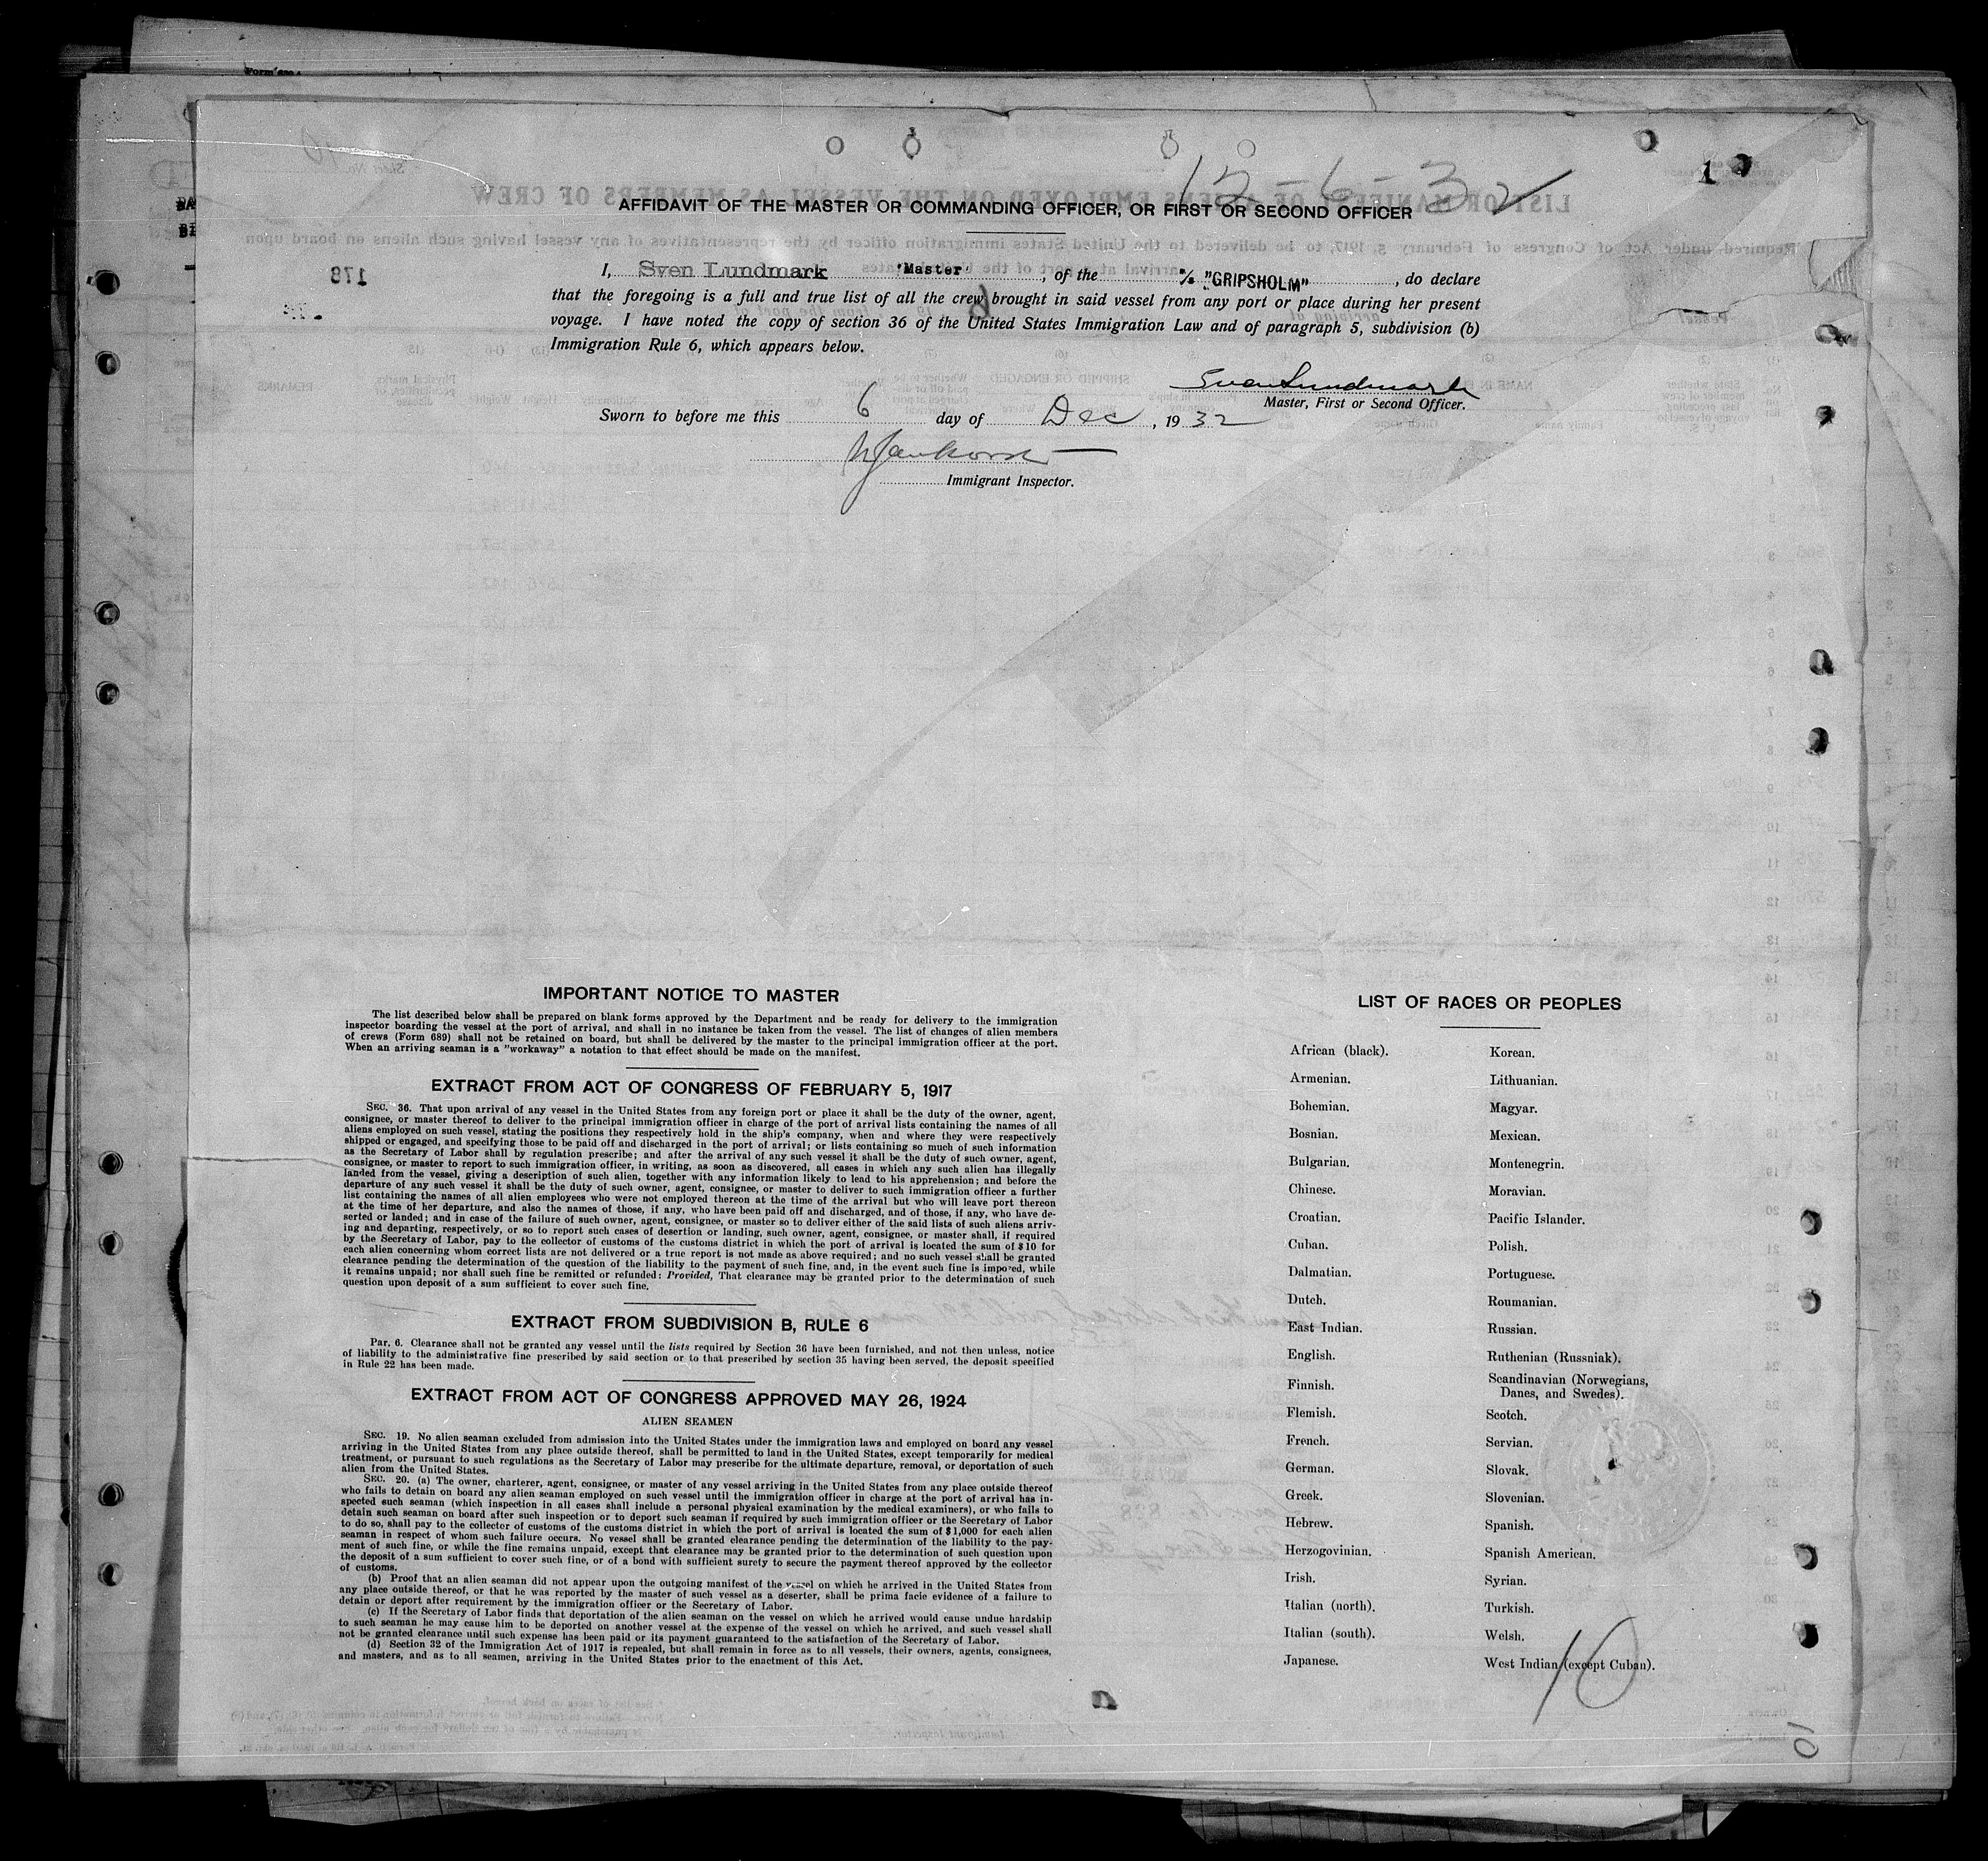 12-6-32
AFFIDAVIT OF THE MASTER OR COMMANDING OFFICER, OR FIRST OR SECOND OFFICER
I, Sven Lundmark 'Master', of the M/S "GRIPSHOLM", do declare
that the foregoing is a full and true list of all the crew brought in said vessel from any port or place during her present
voyage. I have noted the copy of section 36 of the United States Immigration Law and of paragraph 5, subdivision (b)
Immigration Rule 6, which appears below.
Sven Lundmark
Master, First or Second Officer.
Sworn to before me this 6 day of Dec, 1932
Immigrant Inspector.
IMPORTANT NOTICE TO MASTER
The list described below shall be prepared on blank forms approved by the Department and be ready for delivery to the immigration
inspector boarding the vessel at the port of arrival, and shall in no instance be taken from the vessel. The list of changes of alien members
of crews (Form 689) shall not be retained on board, but shall be delivered by the master to the principal immigration officer at the port.
When an arriving seaman is a "workaway" a notation to that effect should be made on the manifest.
EXTRACT FROM ACT OF CONGRESS OF FEBRUARY 5, 1917
SEC. 36. That upon arrival of any vessel in the United States from any foreign port or place it shall be the duty of the owner, agent,
consignee, or master thereof to deliver to the principal immigration officer in charge of the port of arrival lists containing the names of all
aliens employed on such vessel, stating the positions they respectively hold in the ship's company, when and where they were respectively
shipped or engaged, and specifying those to be paid off and discharged in the port of arrival; or lists containing so much of such information
as the Secretary of Labor shall by regulation prescribe; and after the arrival of any such vessel it shall be the duty of such owner, agent,
consignee, or master to report to such immigration officer, in writing, as soon as discovered, all cases in which any such alien has illegally
landed from the vessel, giving a description of such alien, together with any information likely to lead to his apprehension; and before the
departure of any such vessel it shall be the duty of such owner, agent, consignee, or master to deliver to such immigration officer a further
list containing the names of all alien employees who were not employed thereon at the time of the arrival but who will leave port thereon
at the time of her departure, and also the names of those, if any, who have been paid off and discharged, and of those, if any, who have de-
serted or landed; and in case of the failure of such owner, agent, consignee, or master so to deliver either of the said lists of such aliens arriv-
ing and departing, respectively, or so to report such cases of desertion or landing, such owner, agent, consignee, or master shall, if required
by the Secretary of Labor, pay to the collector of customs of the customs district in which the port of arrival is located the sum of $10 for
each alien concerning whom correct lists are not delivered or a true report is not made as above required; and no such vessel shall be granted
clearance pending the determination of the question of the liability to the payment of such fine, and, in the event such fine is imposed, while
it remains unpaid; nor shall such fine be remitted or refunded: Provided, That clearance may be granted prior to the determination of such
question upon deposit of a sum sufficient to cover such fine.
EXTRACT FROM SUBDIVISION B, RULE 6
Par. 6. Clearance shall not be granted any vessel until the lists required by Section 36 have been furnished, and not then unless, notice
of liability to the administrative fine prescribed by said section or to that prescribed by section 35 having been served, the deposit specified
in Rule 22 has been made.
EXTRACT FROM ACT OF CONGRESS APPROVED MAY 26, 1924
ALIEN SEAMEN
SEC. 19. No alien seaman excluded from admission into the United States under the immigration laws and employed on board any vessel
arriving in the United States from any place outside thereof, shall be permitted to land in the United States, except temporarily for medical
treatment, or pursuant to such regulations as the Secretary of Labor may prescribe for the ultimate departure, removal, or deportation of such
alien from the United States.
SEC. 20. (a) The owner, charterer, agent, consignee, or master of any vessel arriving in the United States from any place outside thereof
who fails to detain on board any alien seaman employed on such vessel until the immigration officer in charge at the port of arrival has in-
spected such seaman (which inspection in all cases shall include a personal physical examination by the medical examiners), or who fails to
detain such seaman on board after such inspection or to deport such seaman if required by such immigration officer or the Secretary of Labor
to do so, shall pay to the collector of customs of the customs district in which the port of arrival is located the sum of $1,000 for each alien
seaman in respect of whom such failure occurs. No vessel shall be granted clearance pending the determination of the liability to the pay-
ment of such fine, or while the fine remains unpaid, except that clearance may be granted prior to the determination of such question upon
the deposit of a sum sufficient to cover such fine, or of a bond with sufficient surety to secure the payment thereof approved by the collector
of customs.
(b) Proof that an alien seaman did not appear upon the outgoing manifest of the vessel on which he arrived in the United States from
any place outside thereof, or that he was reported by the master of such vessel as a deserter, shall be prima facie evidence of a failure to
detain or deport after requirement by the immigration officer or the Secretary of Labor.
(c) If the Secretary of Labor finds that deportation of the alien seaman on the vessel on which he arrived would cause undue hardship
to such seaman he may cause him to be deported on another vessel at the expense of the vessel on which he arrived, and such vessel shall
not be granted clearance until such expense has been paid or its payment guaranteed to the satisfaction of the Secretary of Labor.
(d) Section 32 of the Immigration Act of 1917 is repealed, but shall remain in force as to all vessels, their owners, agents, consignees,
and masters, and as to all seamen, arriving in the United States prior to the enactment of this Act.
LIST OF RACES OR PEOPLES
African (black).
Armenian.
Bohemian.
Bosnian.
Bulgarian.
Chinese.
Croatian.
Cuban.
Dalmatian.
Dutch.
East Indian.
English.
Finnish.
Flemish.
French.
German.
Greek.
Hebrew.
Herzogovinian.
Irish.
Italian (north).
Italian (south).
Japanese.
Korean.
Lithuanian.
Magyar.
Mexican.
Montenegrin.
Moravian.
Pacific Islander.
Polish.
Portuguese.
Roumanian.
Russian.
Ruthenian (Russniak).
Scandinavian (Norwegians,
Danes, and Swedes).
Scotch.
Servian.
Slovak.
Slovenian.
Spanish.
Spanish American.
Syrian.
Turkish.
Welsh.
West Indian (except Cuban).
10
10